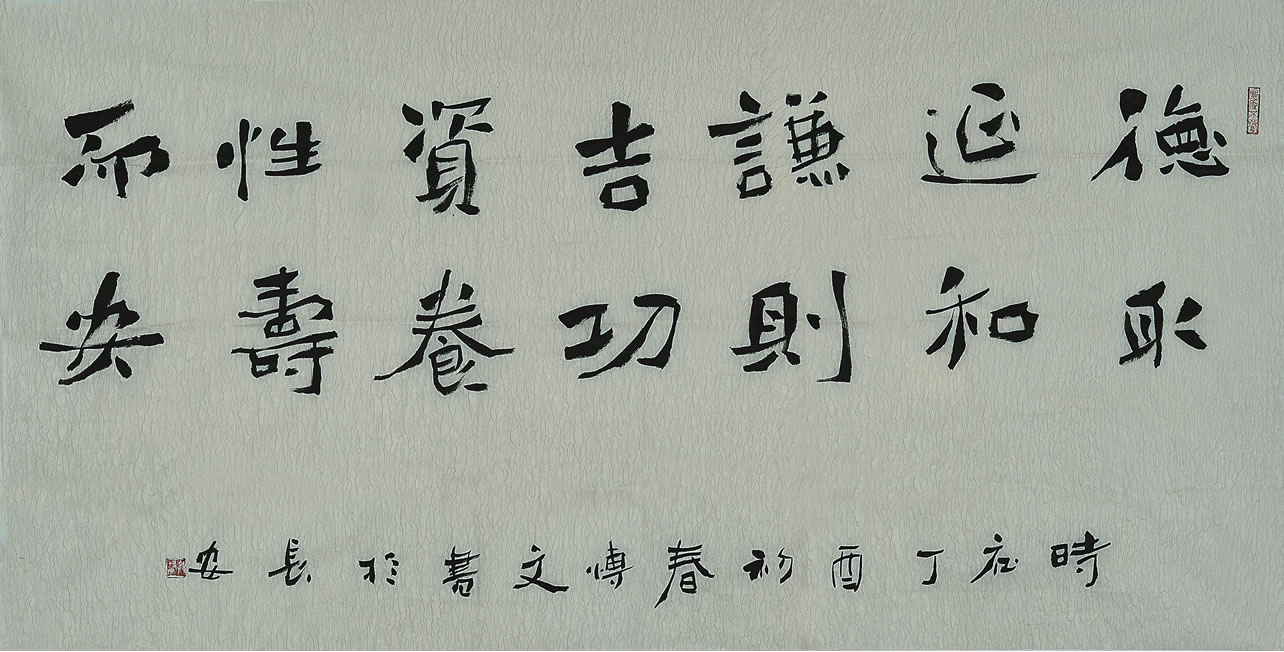 德取
延和
謙則
吉功
資養
性壽
而安
時在丁酉初春愽文書於長安